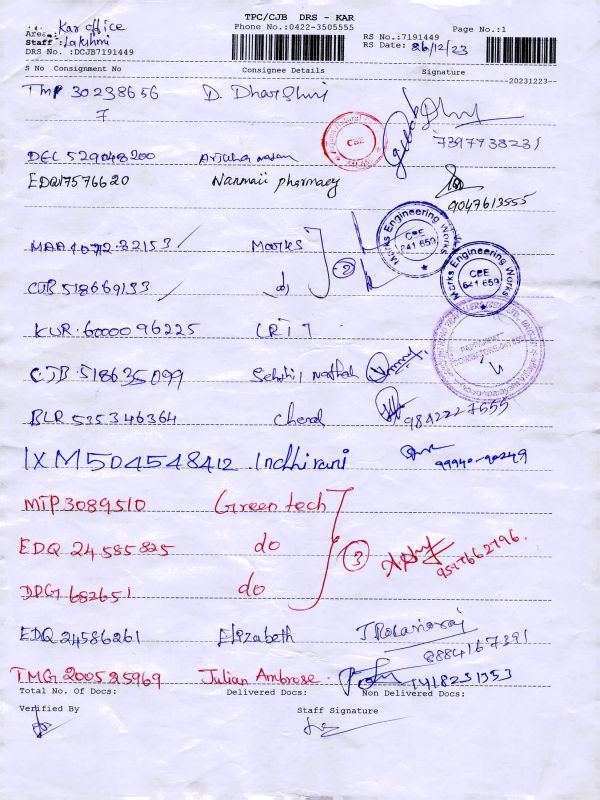 TPC/CJB DRS - KAR
Phone No.:0422-3505555
Page No.:1
Area: Kar office
Staff: Lakshmi
DRS No. :DCJB7191449
RS No.:7191449
RS Date: 26/12/23
S No Consignment No Consignee Details Signature
20231223
TMP 30238656 D. Dharshni
7
7397738231
CBE
DEL 529048200
EDQ17576620 Nanmaii pharmacy
9047613555
Marks Engineering Works
CBE
641 659
Marks Engineering Works
CBE
641 659
Marks
2
CJB 518669133 do
KUR 6000096225
CJB 518635099
BLR 535346364
9842227555
IXM504548412 Indhirani
99940-90249
MTP 3089510 Green tech
EDQ 24585825 do
3
9547662796.
DPG 682651 do
EDQ 24586261 Elizabeth
8884167391
TMG 200525969 Julian Ambrose
Total No. Of Docs: Delivered Docs: Non Delivered Docs:
Verified By Staff Signature